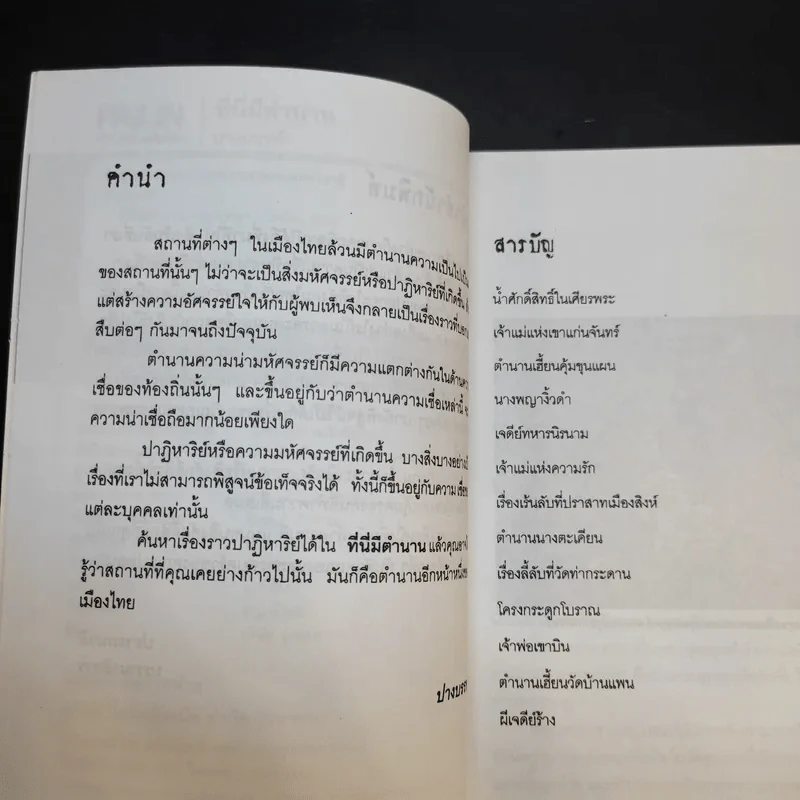 คำนำ
สถานที่ต่างๆ ในเมืองไทยล้วนมีตำนานความเป็นไปเป็น
ของสถานที่นั้นๆ ไม่ว่าจะเป็นสิ่งมหัศจรรย์หรือปาฏิหาริย์ที่เกิดขึ้น
แต่สร้างความอัศจรรย์ใจให้กับผู้พบเห็นจึงกลายเป็นเรื่องราวที่บอก
สืบต่อๆ กันมาจนถึงปัจจุบัน
ตำนานความน่ามหัศจรรย์ก็มีความแตกต่างกันในด้าน
เชื่อของท้องถิ่นนั้นๆ และขึ้นอยู่กับว่าตำนานความเชื่อเหล่านี้
ความน่าเชื่อถือมากน้อยเพียงใด
ปาฏิหาริย์หรือความมหัศจรรย์ที่เกิดขึ้น บางสิ่งบางอย่าง
เรื่องที่เราไม่สามารถพิสูจน์ข้อเท็จจริงได้ ทั้งนี้ก็ขึ้นอยู่กับความ
แต่ละบุคคลเท่านั้น
ค้นหาเรื่องราวปาฏิหาริย์ได้ใน ที่นี่มีตำนาน แล้วคุณ
รู้ว่าสถานที่ที่คุณเคยย่างก้าวไปนั้น มันก็คือตำนานอีกหน้าหนึ่ง
เมืองไทย
สารบัญ
น้ำศักดิ์สิทธิ์ในเศียรพระ
เจ้าแม่แห่งเขาแก่นจันทร์
ตำนานเฮี้ยนคุ้มขุนแผน
นางพญางิ้วดำ
เจดีย์ทหารนิรนาม
เจ้าแม่แห่งความรัก
เรื่องเร้นลับที่ปราสาทเมืองสิงห์
ตำนานนางตะเคียน
เรื่องลี้ลับที่วัดท่ากระดาน
โครงกระดูกโบราณ
เจ้าพ่อเขาบิน
ตำนานเฮี้ยนวัดบ้านแพน
ผีเจดีย์ร้าง